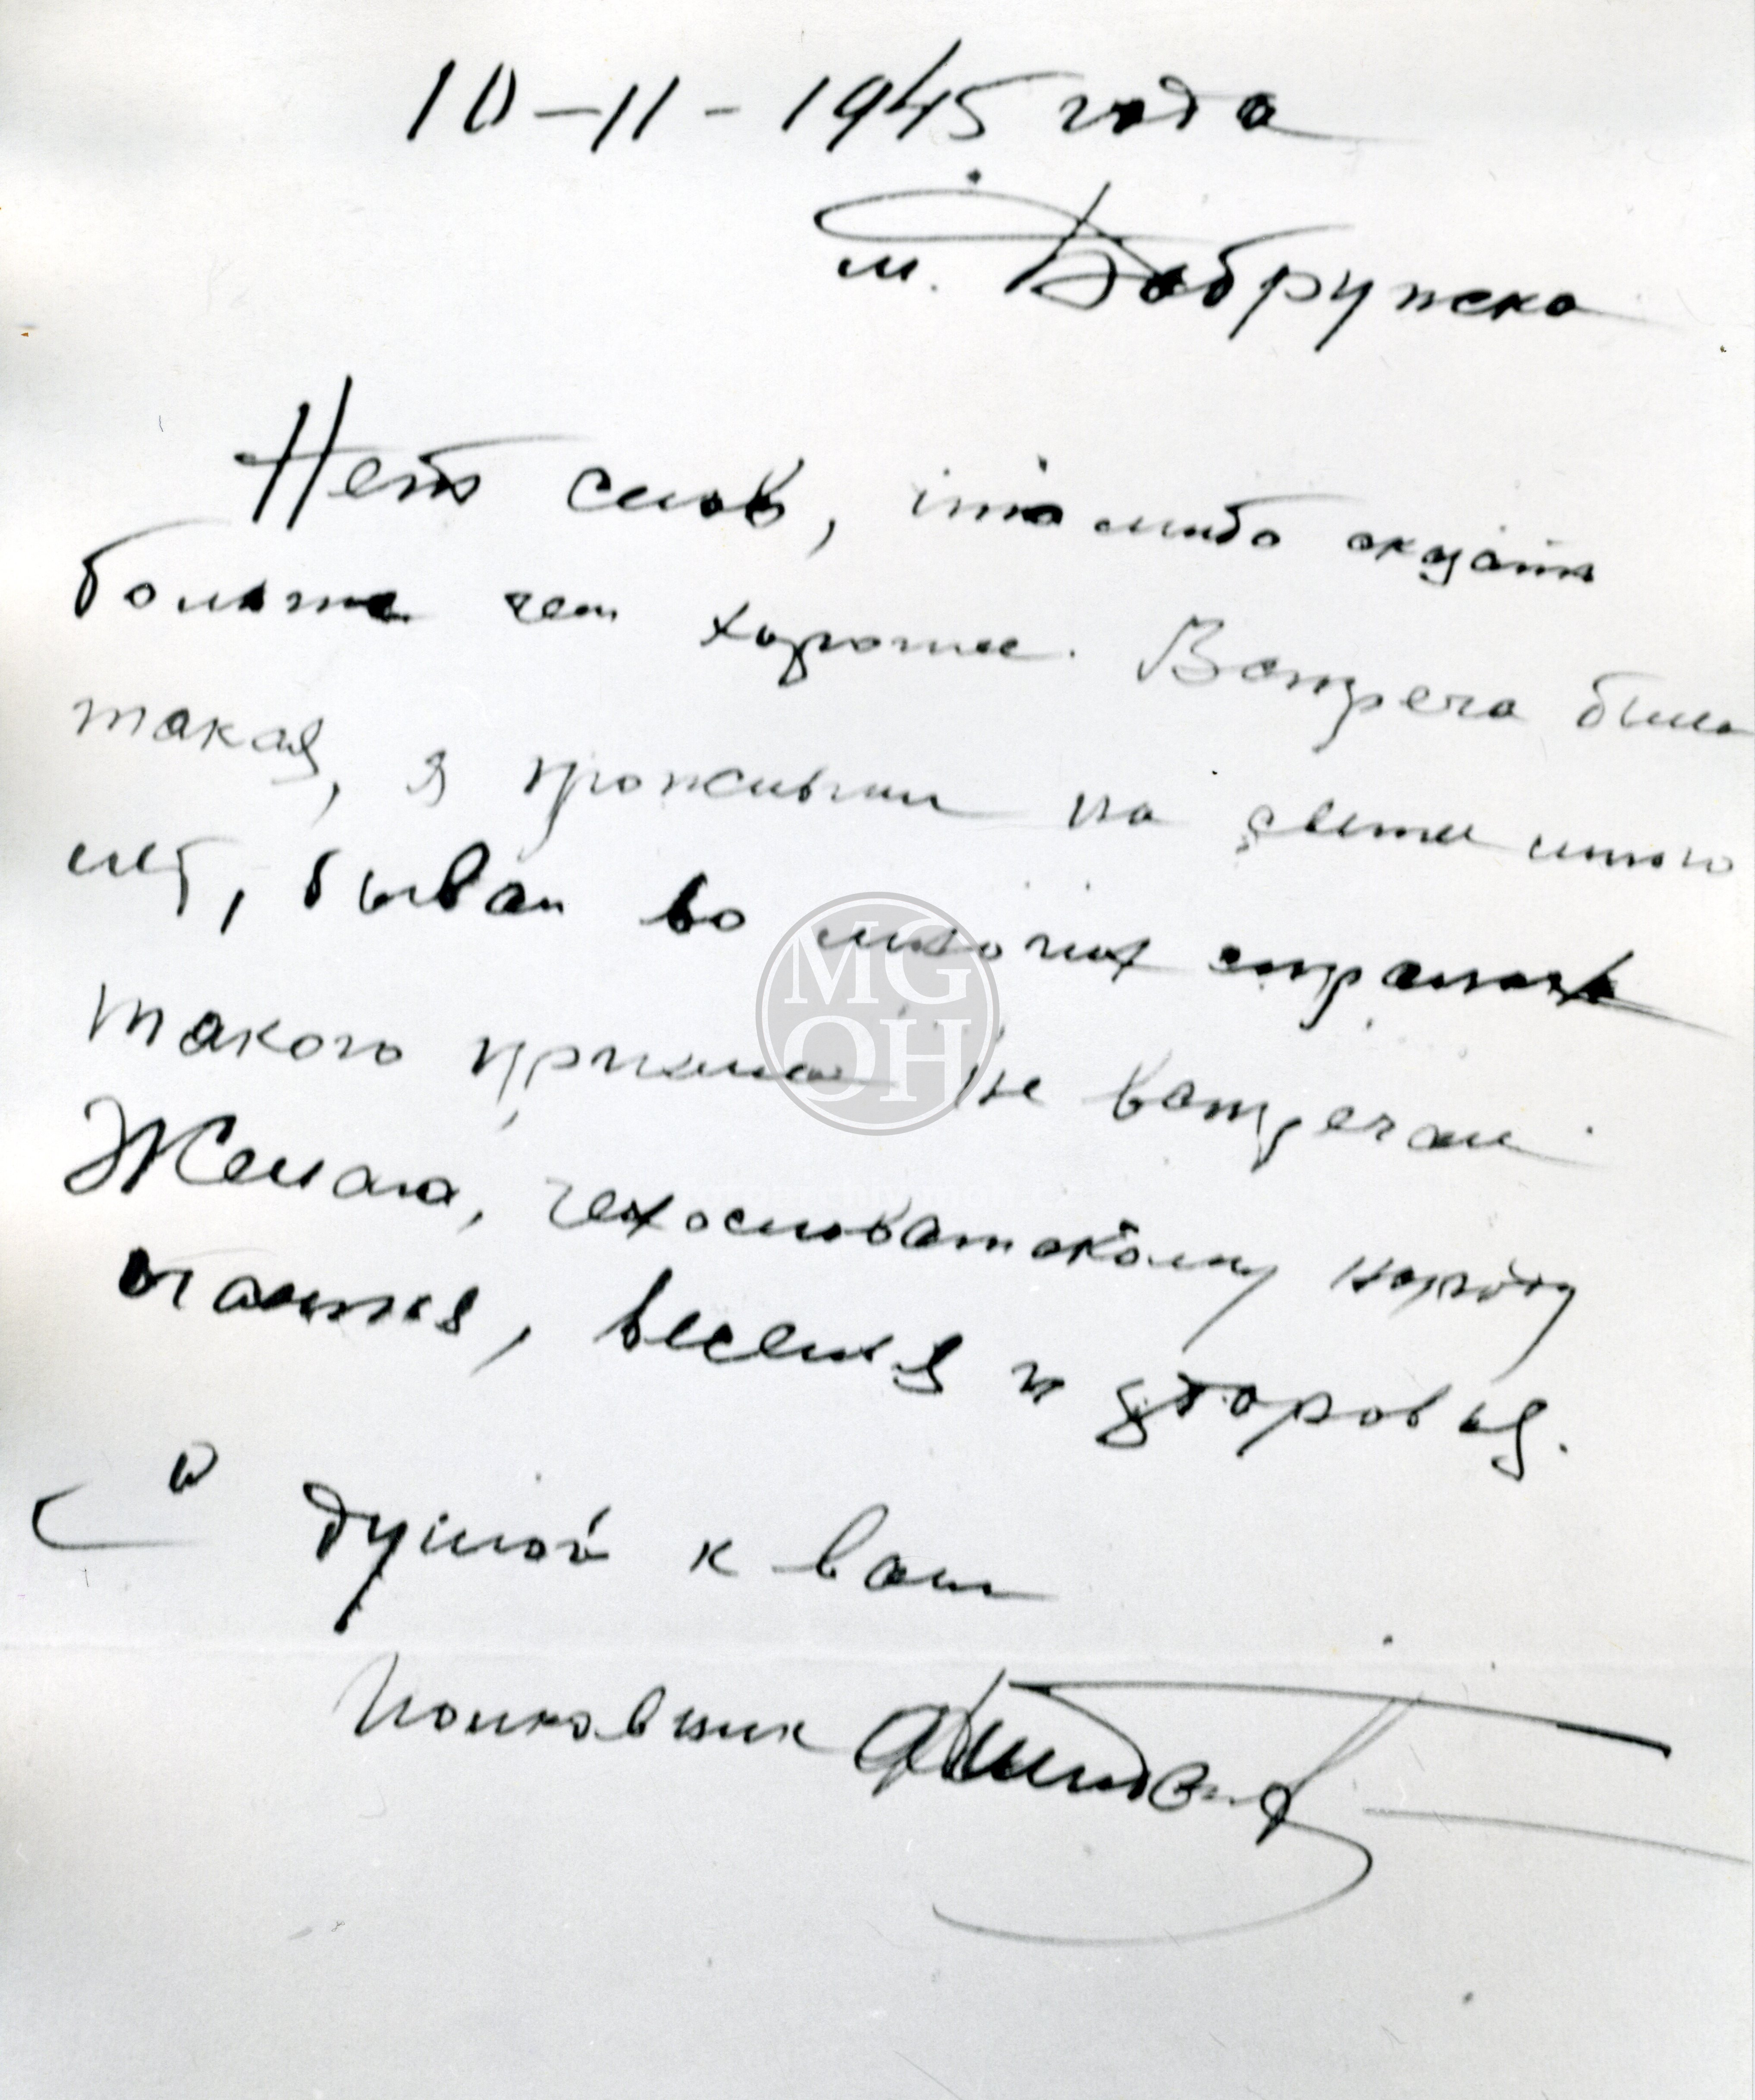 10-11-1945 года
м. Добрушка
Нет слов, что либо сказать
больше чем хорошее. Встреча была
такая, я проживши на свете много
лет, бывал во многих странах
такого приема не встречал.
Желаю, чехословатскому народу
счастия, веселия и здоровья.
С душой к вам
Полковник
MG
OH